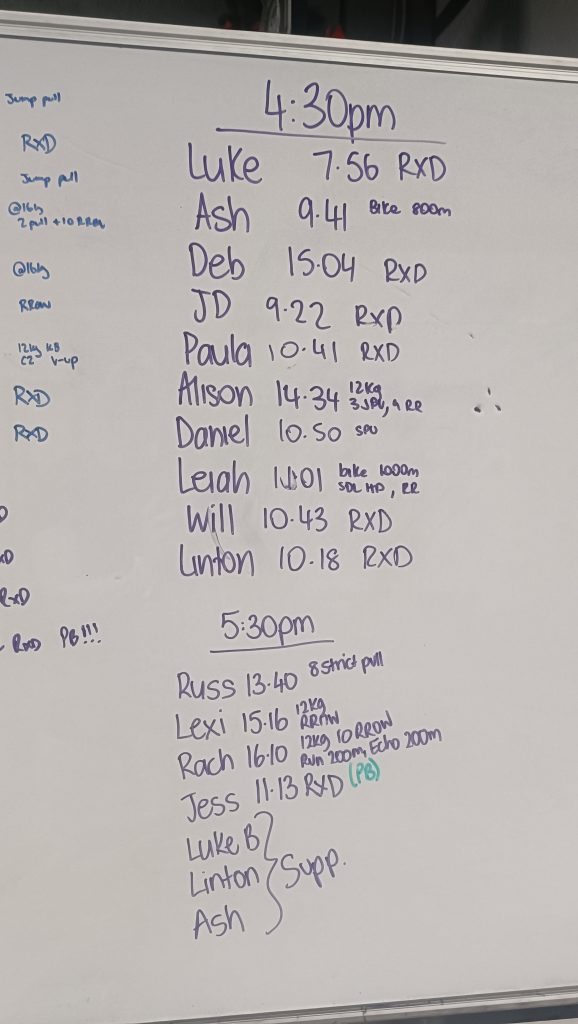 Jump pull
RXD
Jump pull
@16kg
2 pull + 10 RRow
@16kg
RRow
12kg KB
C2 V-up
RXD
RXD
RXD
RXD PB!!!
4:30pm
Luke 7.56 RXD
Ash 9.41 Bike 800m
Deb 15.04 RXD
JD 9.22 RXD
Paula 10.41 RXD
Alison 14.34 12kg
3 SPU, 9 RR
Daniel 10.50 SPU
Leiah 11.01 bike 1000m
SDL HP, RR
Will 10.43 RXD
Linton 10.18 RXD
5:30pm
Russ 13.40 8 strict pull
Lexi 15.16 12kg
RROW
Rach 16.10 12kg 10 RROW
Run 200m, Echo 200m
Jess 11.13 RXD (PB)
Luke B
Linton } Supp.
Ash